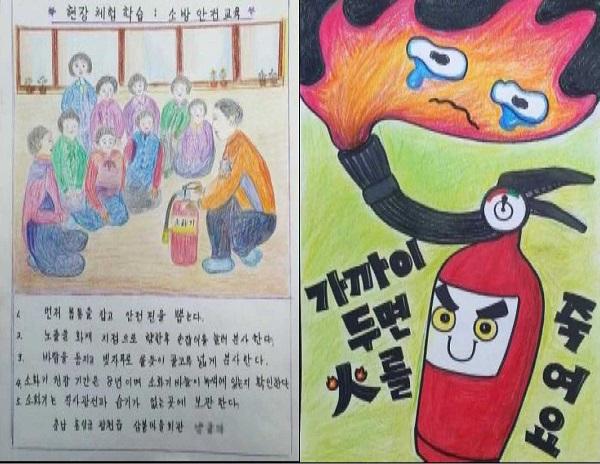 현장 체험 학습 : 소방 안전교육
소화기
1. 먼저 몸통을 잡고 안전핀을 뽑는다.
2. 노즐을 화재 지점으로 향한후 손잡이를 눌러 분사 한다.
3. 바람을 등지고 빗자루로 쓸듯이 골고루 넓게 분사한다.
4. 소화기 권장 기간은 8년이며 소화기 바늘이 녹색에 있는지 확인한다
5. 소화기는 직사광선과 습기가 없는곳에 보관한다.
충남 홍성군 광천읍 삼봉마을회관
가까이
두면
火를
죽여요